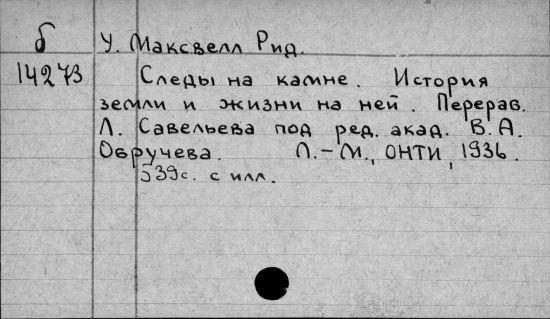 б У. Максвелл Рид.
14273 Следы на камне. История
земли и жизни на ней. Перераб.
Л. Савельева под ред. акад. В. А.
Обручева. Л.-М., ОНТИ, 1936.
339с. с илл.